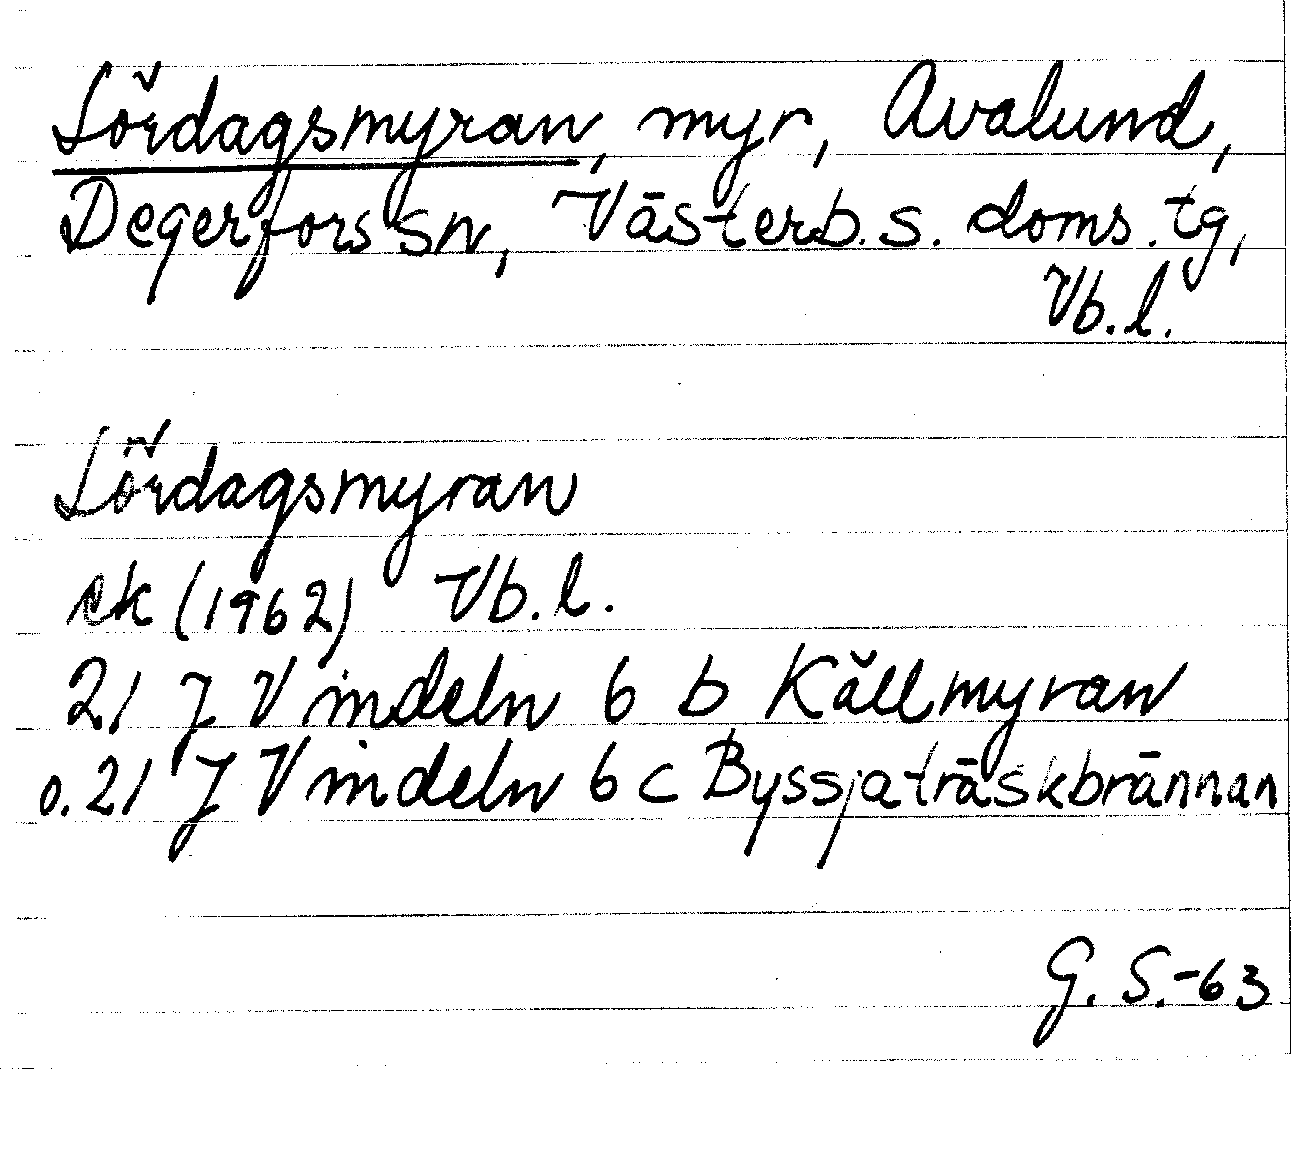 Lördagsmyran, myr, Avalund,
Degerfors sn, Västerb. s. doms. tg,
Vb. l.
Lördagsmyran
ek (1962) Vb. l.
21 J Vindeln 6 b Källmyran
o. 21 J Vindeln 6 c Byssjaträskbrännan
G. S.-63